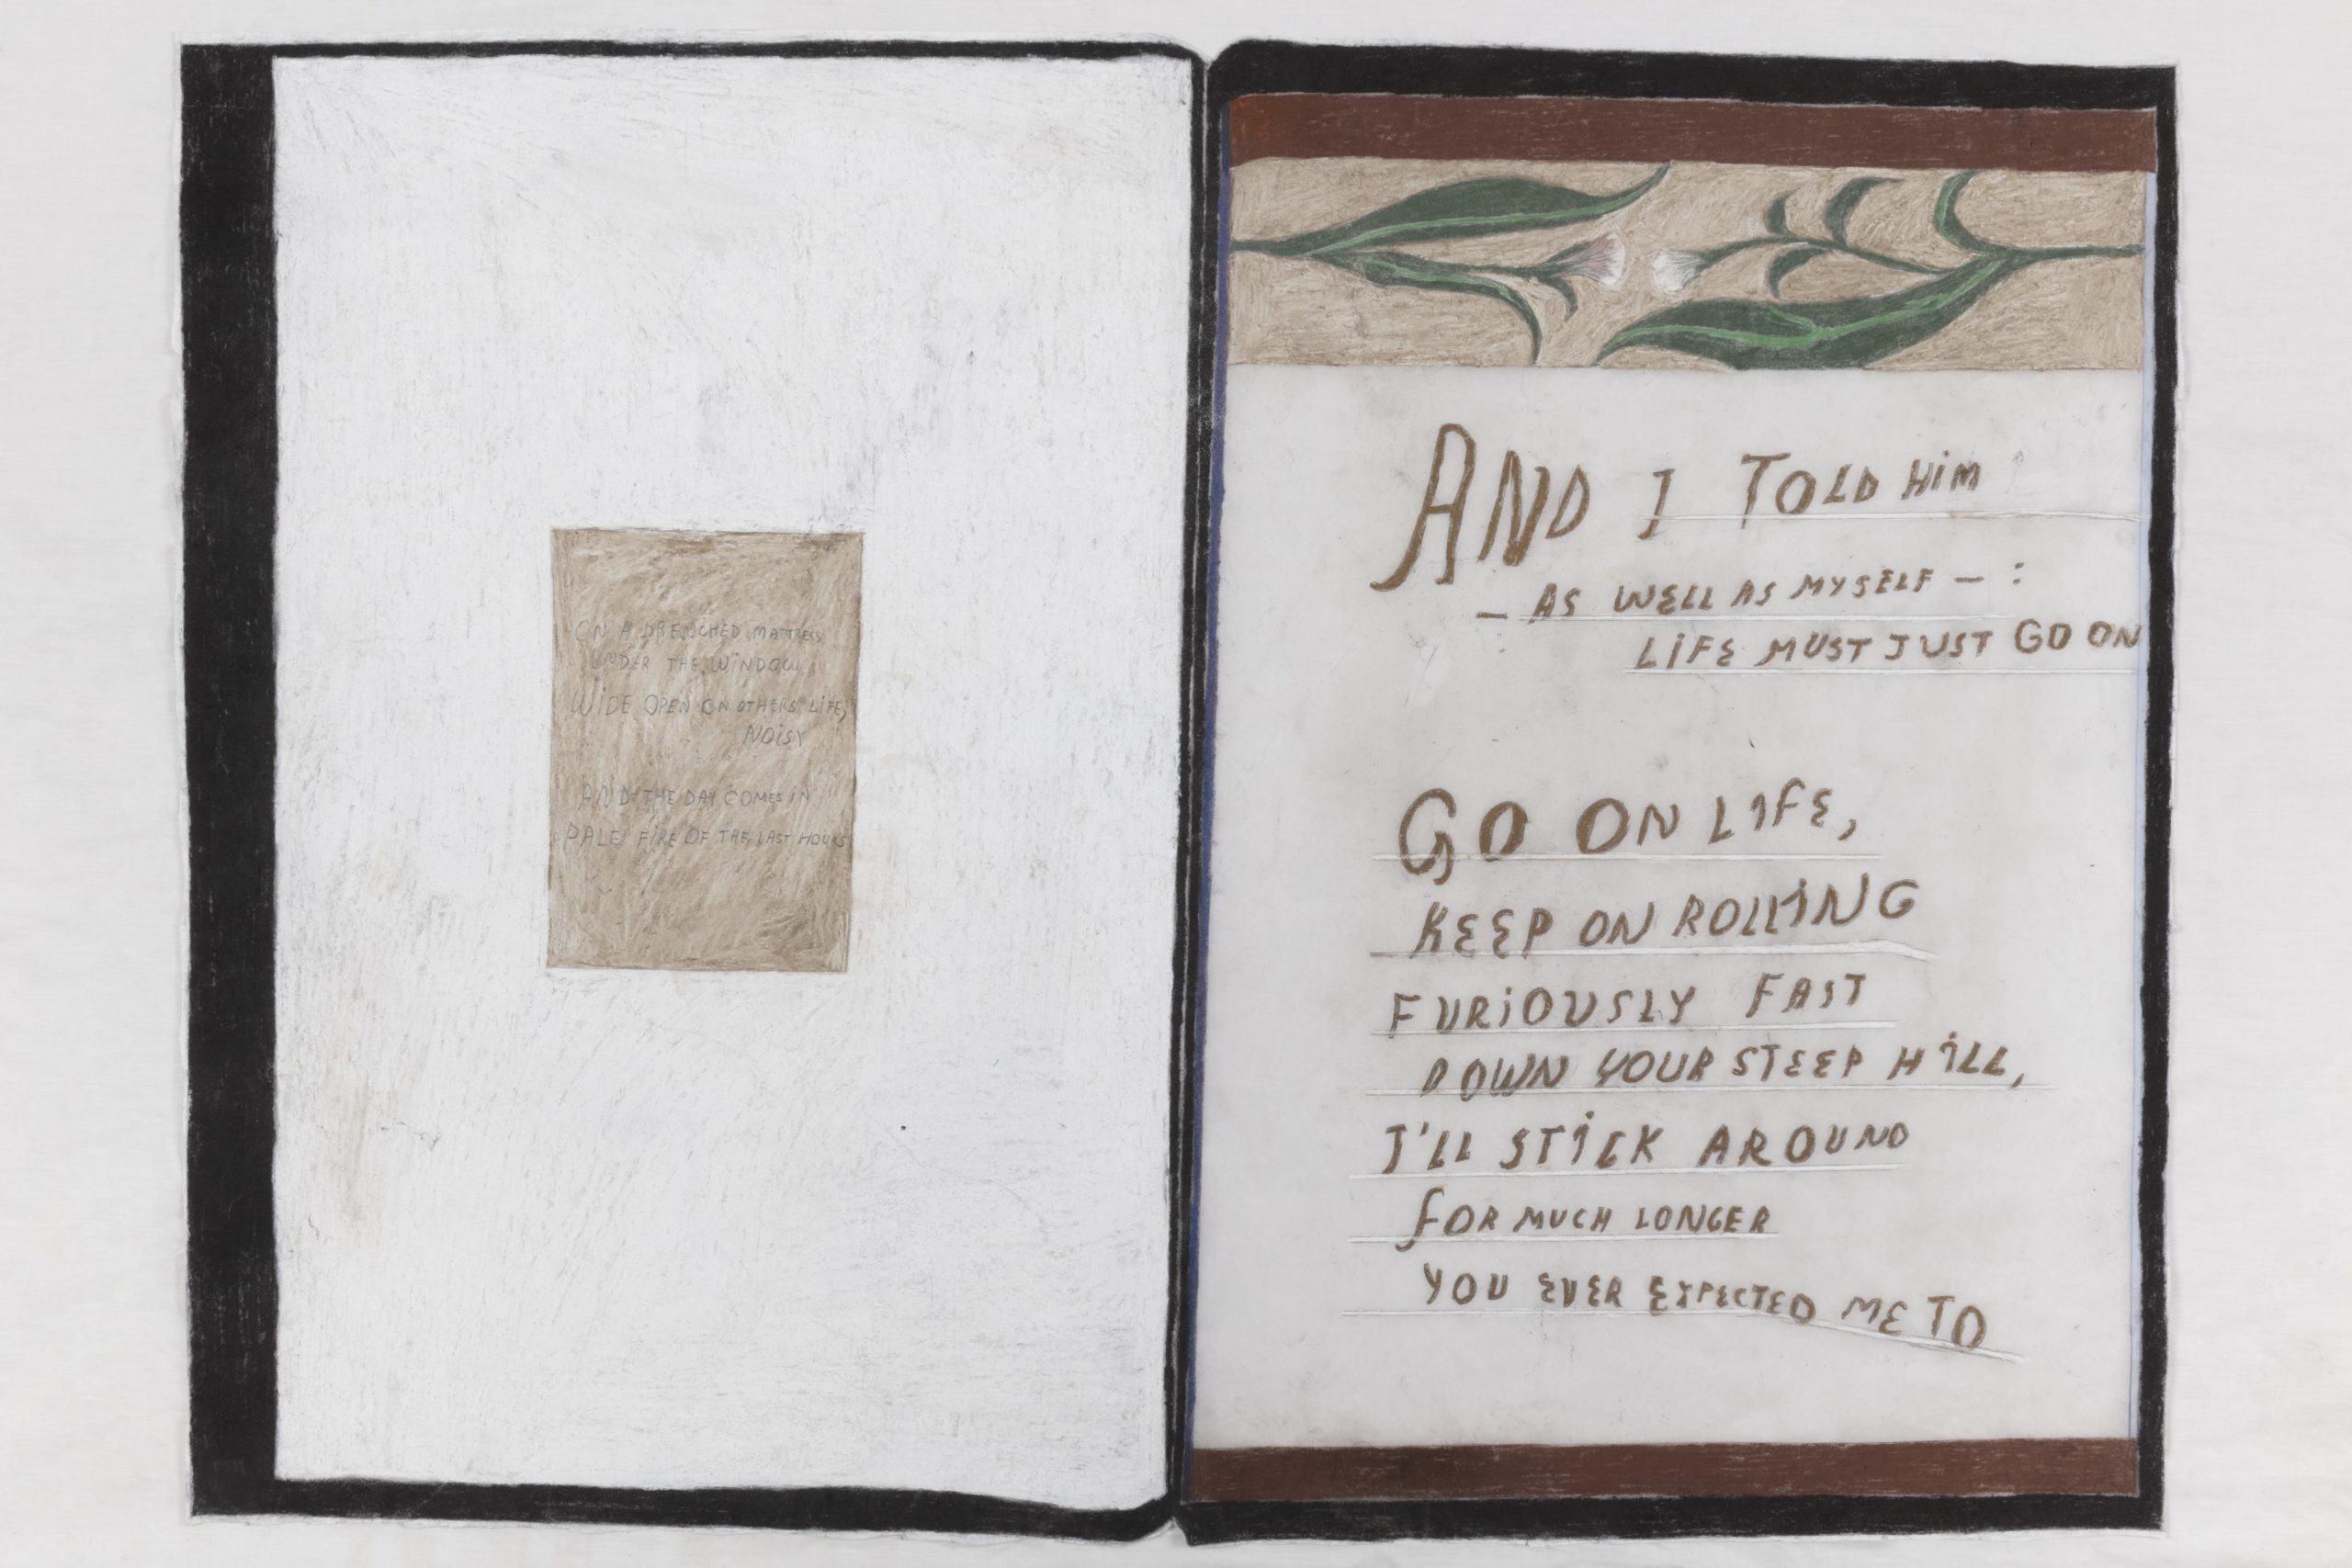 ON A DRENCHED MATTRESS
UNDER THE WINDOW
WIDE OPEN ON OTHERS' LIFE,
NOISY
AND THE DAY COMES IN
PALE FIRE OF THE LAST HOURS
AND I TOLD HIM
— AS WELL AS MYSELF — :
LIFE MUST JUST GO ON
GO ON LIFE,
KEEP ON ROLLING
FURIOUSLY FAST
DOWN YOUR STEEP HILL,
I'LL STICK AROUND
FOR MUCH LONGER
YOU EVER EXPECTED ME TO